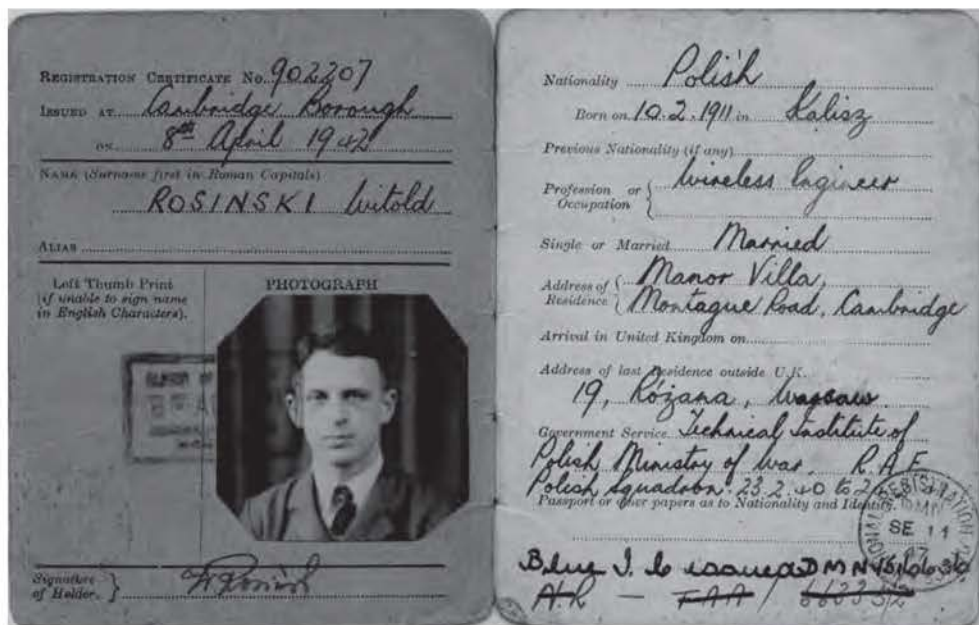 REGISTRATION CERTIFICATE No. 902207
ISSUED AT Cambridge Borough
ON 8th April 1942
NAME (Surname first in Roman Capitals)
ROSINSKI Witold
ALIAS
Left Thumb Print
(if unable to sign name
in English Characters).
PHOTOGRAPH
Signature
of Holder.
Nationality Polish
Born on 10.2.1911 in Kalisz
Previous Nationality (if any)
Profession or
Occupation
Wireless Engineer
Single or Married Married
Address of
Residence
Manor Villa,
Montague Road, Cambridge
Arrival in United Kingdom on
Address of last Residence outside U.K.
19, Rózana, Warsaw
Government Service Technical Institute of
Polish Ministry of War. R.A.F.
Polish squadron. 23.2.40 to
Passport or other papers as to Nationality and Identity.
SE 11
Blue I.C issued DMN
A.R — FAA /